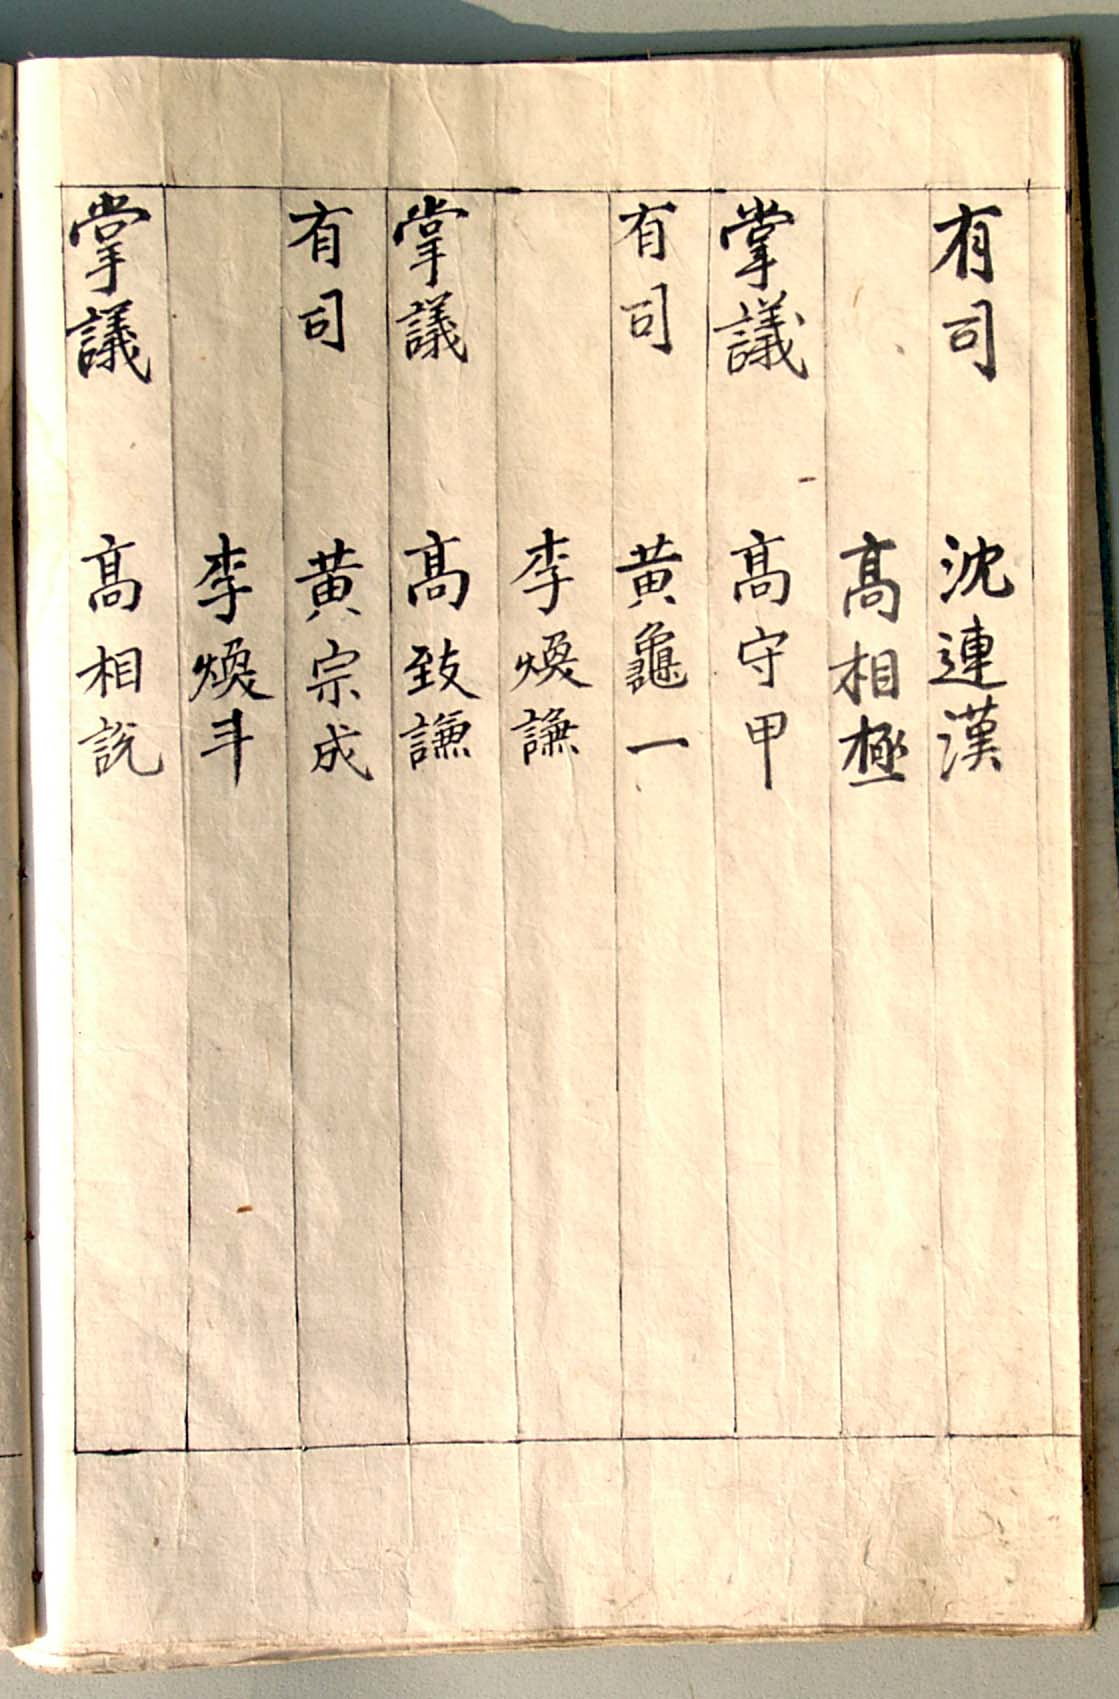 有司 沈連漢
高相極
掌議 高守甲
有司 黄龜一
李煥謙
掌議 高致謙
有司 黄宗成
李煥斗
掌議 高相說